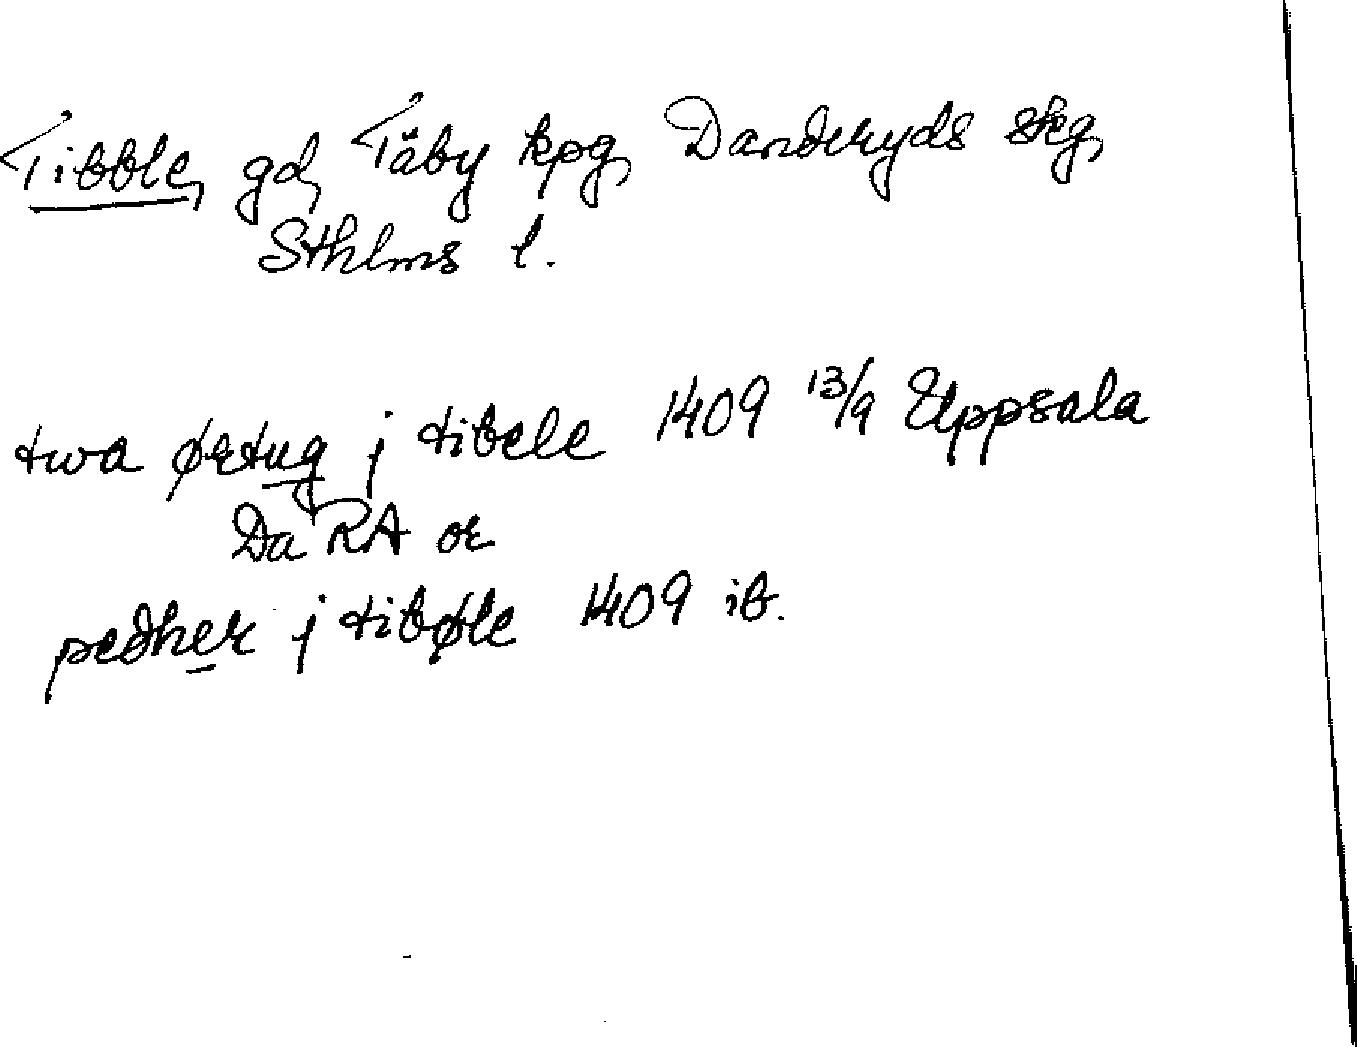 Tibble, gd, Täby kpg, Danderyds skg,
Sthlms l.
twa ørtug j tibele 1409 13/9 Uppsala
Da RA or
pedher j tibøle 1409 ib.